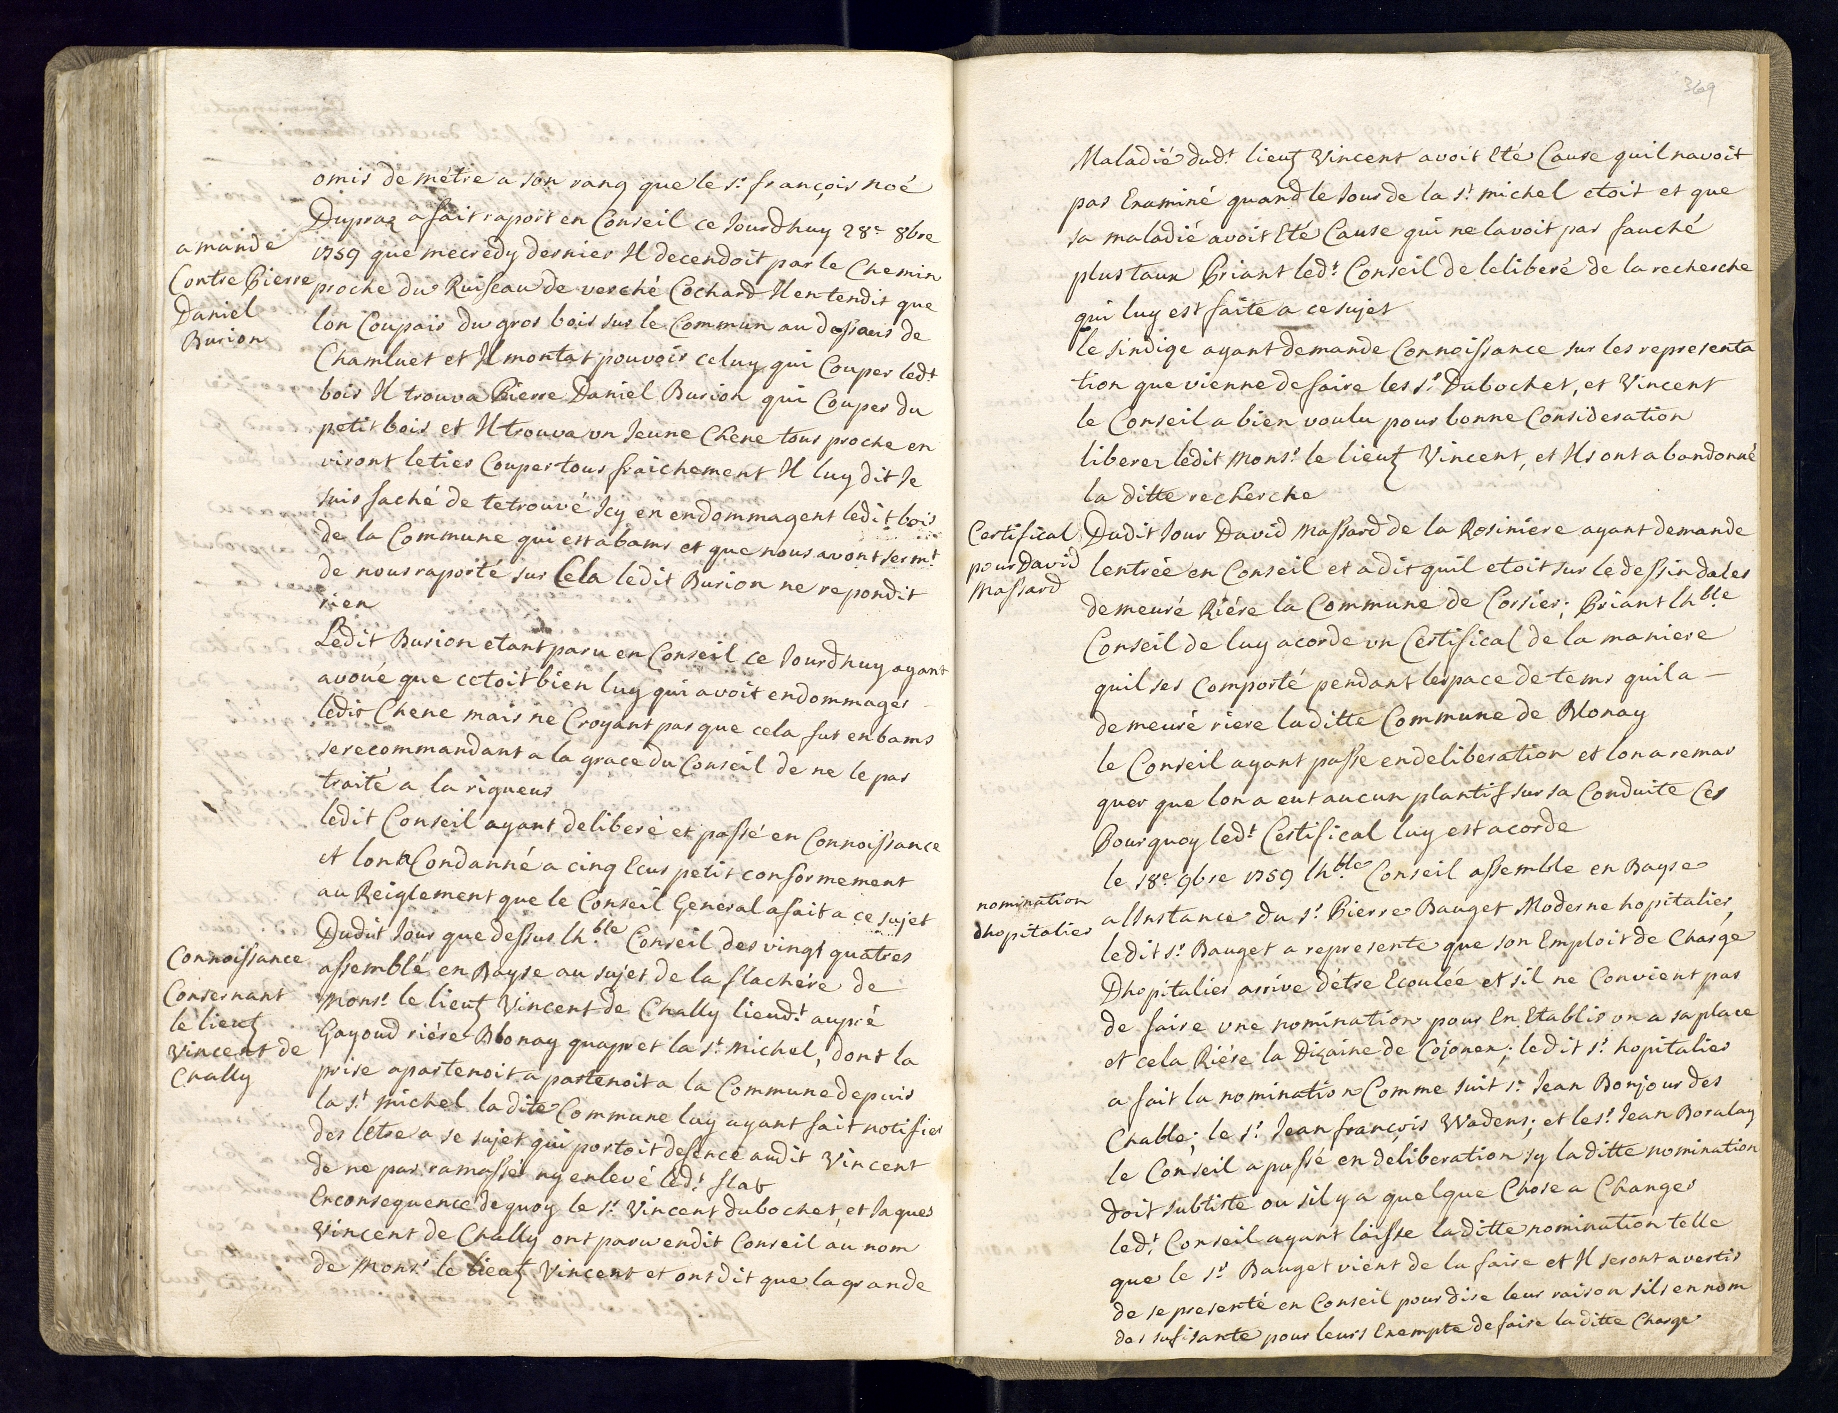 omis de métre a son rang que le Sr. françois noé
Dupraz a fait raport en Conseil ce Jourdhuy 28e 8bre
1759 que mecredy dernier Il decendoit par le Chemin
amande
Contre Pierre
Daniel
Burion
proche du Ruisseau de verché Cochard Il entendit que
lon Coupais du gros bois sur le Commun au dessus de
Chamluet et Il montat pouvoir celuy qui Couper ledt
bois Il trouva Pierre Daniel Burion qui Couper du
petit bois et Il trouva un Jeune Chene tous proche en
viront le tier Couper tous fraichement Il luy dit Je
suis faché de te trouvé Icy en endommagent ledit bois
de la Commune qui est abams et que nous avont sermt
de nous raporté sur Cela ledit Burion ne repondit
rien
Ledit Burion etant paru en Conseil ce Jourdhuy ayant
avoüé que cetoit bien luy qui avoit endommager
ledit Chene mais ne Croyant pas que cela fut en bams
se recommandant a la grace du Conseil de ne le pas
traité a la rigueur
ledit Conseil ayant deliberé et passé en Connoissance
et lon a Condanné a cinq Ecus petit conformement
au Reiglement que le Conseil General a fait a ce sujet
Connoissance
Consernant
le lieut
Vincent de
Chally
Dudit Jour que dessus lhble Conseil des vingt quatres
assemblé en Bayse au sujet de la flachére de
Monsr. le lieut Vincent de Chally lieudt aupré
Gayoud riére Blonay quapret la St. michel, dont la
prise apartenoit apartenoit a la Commune depuis
la St. michel ladite Commune luy ayant fait notifier
des létre a se sujet qui portoit defence audit Vincent
de ne pas ramassér ny enlevé ledt. flat
En consequence de quoy le Sr. Vincent dubochet, et Jaques
Vincent de Chally ont paru en dit Conseil au nom
de Monsr. le lieut Vincent et ont dit que la grande
369
Maladié dudt. lieut Vincent avoit Eté Cause quil navoit
pas Examiné quand le Jour de la St. michel etoit et que
sa maladié avoit Eté Cause qui ne lavoit pas fauché
plus taux Priant ledt. Conseil de le liberé de la recherche
qui luy est faite a ce sujet
le sindige ayant demande Connoissance sur les representa
tion que vienne de faire les Srs Dubochet, et Vincent
le Conseil a bien voulu pour bonne Consideration
liberer ledit Monsr. le lieut Vincent, et Ils ont abandonné
la ditte recherche
Certifical
pour David
Massard
Dudit Jour David Massard de la Rosiniere ayant demande
lentrée en Conseil et a dit quil etoit sur le dessin daler
demeuré Riére la Commune de Corsier; Priant lhble
Conseil de luy acorde un Certifical de la maniere
quil ses Comporté pendant lespace de tems quil a –
demeuré riere laditte Commune de Blonay
le Conseil ayant passe en deliberation et lon a remar
quer que lon a eut aucun plantif sur sa Conduite Ces
Pourquoy ledt. Certifical luy est acorde
nomination
dhopitalier
le 18e 9bre 1759 lhble Conseil assemble en Bayse
a lInstance du Sr. Pierre Bauget Moderne hopitalier,
ledit Sr. Bauget a represente que son Emploit de Charge
Dhopitalier arrive détre Ecoulée et sil ne Convient pas
de faire une nomination pour En Etablir un a sa place
et cela Riére la Dizaine de Cojonex; ledit Sr. hopitalier
a fait la nomination Comme suit Sr. Jean Bonjour des
Chable; le Sr. Jean françois Wadens; et le Sr. Jean Boralay
le Conseil a passé en deliberation sy laditte nomination
doit subtiste ou sil y a quelque Chose a Changer
ledt. Conseil ayant laisse laditte nomination telle
que le Sr. Bauget vient de la faire et Il seront avertir
de se presenté en Conseil pour dire leur raison sils en nom
des sufisante pour leurs Exempte de faire laditte Charge